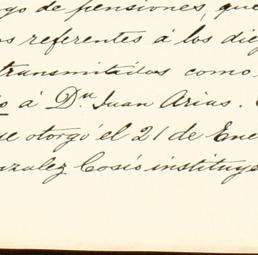 go de pensiones, que
os referentes á los die
transmitidos como
o á Dn. Juan Arias.
ue otorgó el 21 de Ene
onzalez Cosio instituye